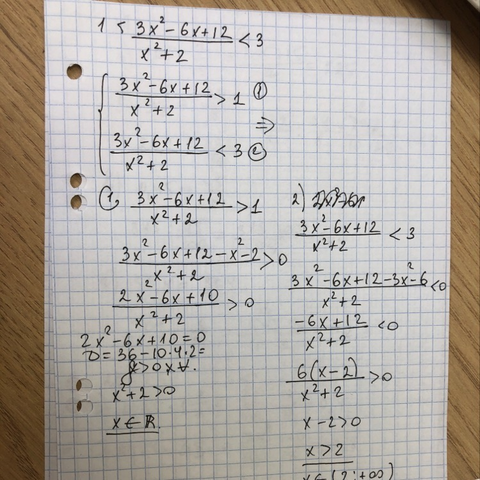 1 < (3x²-6x+12)/(x²+2) < 3
{ (3x²-6x+12)/(x²+2) > 1 ①
⇒
(3x²-6x+12)/(x²+2) < 3 ②
① (3x²-6x+12)/(x²+2) > 1
(3x²-6x+12-x²-2)/(x²+2) > 0
(2x²-6x+10)/(x²+2) > 0
2x²-6x+10=0
D=36-10·4·2=
>0 x ∀.
x²+2>0
x∈R
2)
(3x²-6x+12)/(x²+2) < 3
(3x²-6x+12-3x²-6)/(x²+2) < 0
(-6x+12)/(x²+2) < 0
(6(x-2))/(x²+2) > 0
x-2>0
x>2
x∈(2;+∞)